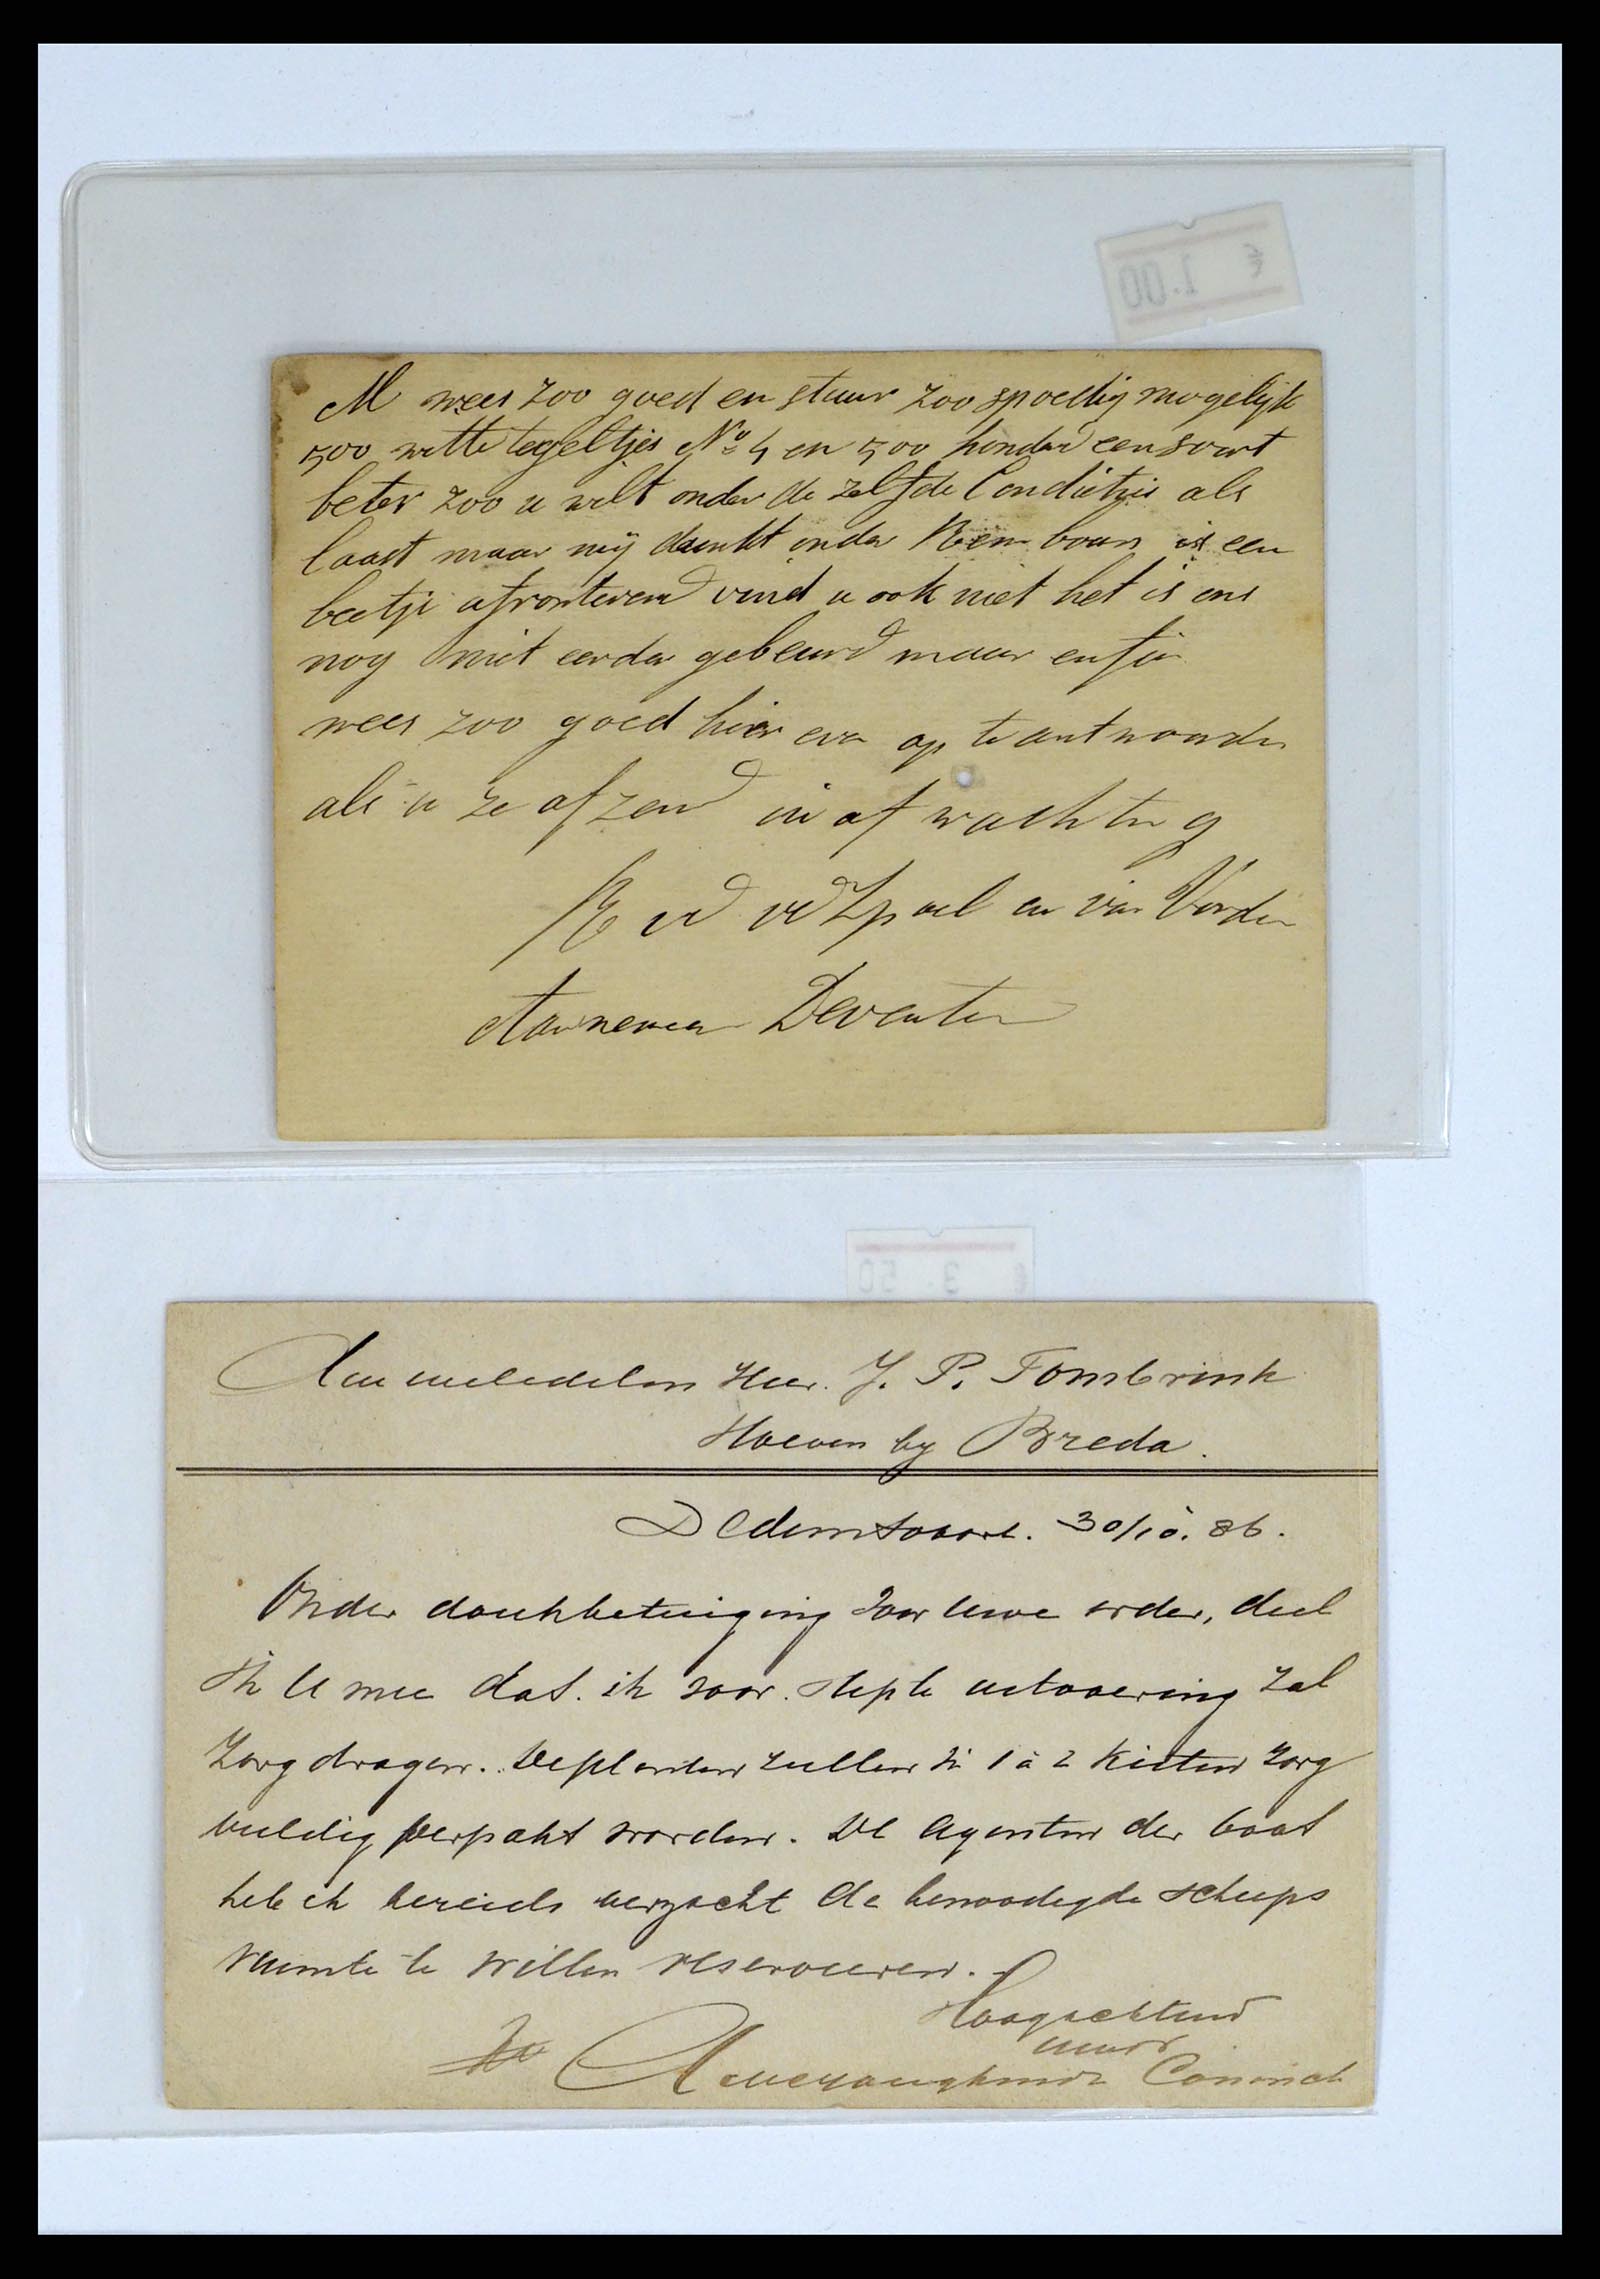 € 1.00
M wees zoo goed en stuur zoo spoedig mogelijk
500 witte tegeltjes No 4 en 500 honder een soort
beter zoo u wilt onder de zelfde Condietsie als
laast maar mij dunkt onder Rem bours is een
beetje afronterend vind u ook niet het is ons
nog niet eerder gebeurd maar enfin
wees zoo goed hier even op te antwoorden
als u ze afzend in afwachting
en van Vorden
Aannemer Deventer
€ 3.50
Aan weledelen Heer. J. P. Tombrink
Hoeven by Breda.
Dedemsvaart. 30/10. 86.
Onder dankbetuiging voor uwe order, deel
ik U mee dat. ik voor. stipte uitvoering zal
zorg dragen. De planten zullen in 1 à 2 kisten zorg
vuldig verpakt worden. De Agenten der boot
heb ik bereids verzocht de benoodigde scheeps
ruimte te willen reserveeren.
Hoogachtend